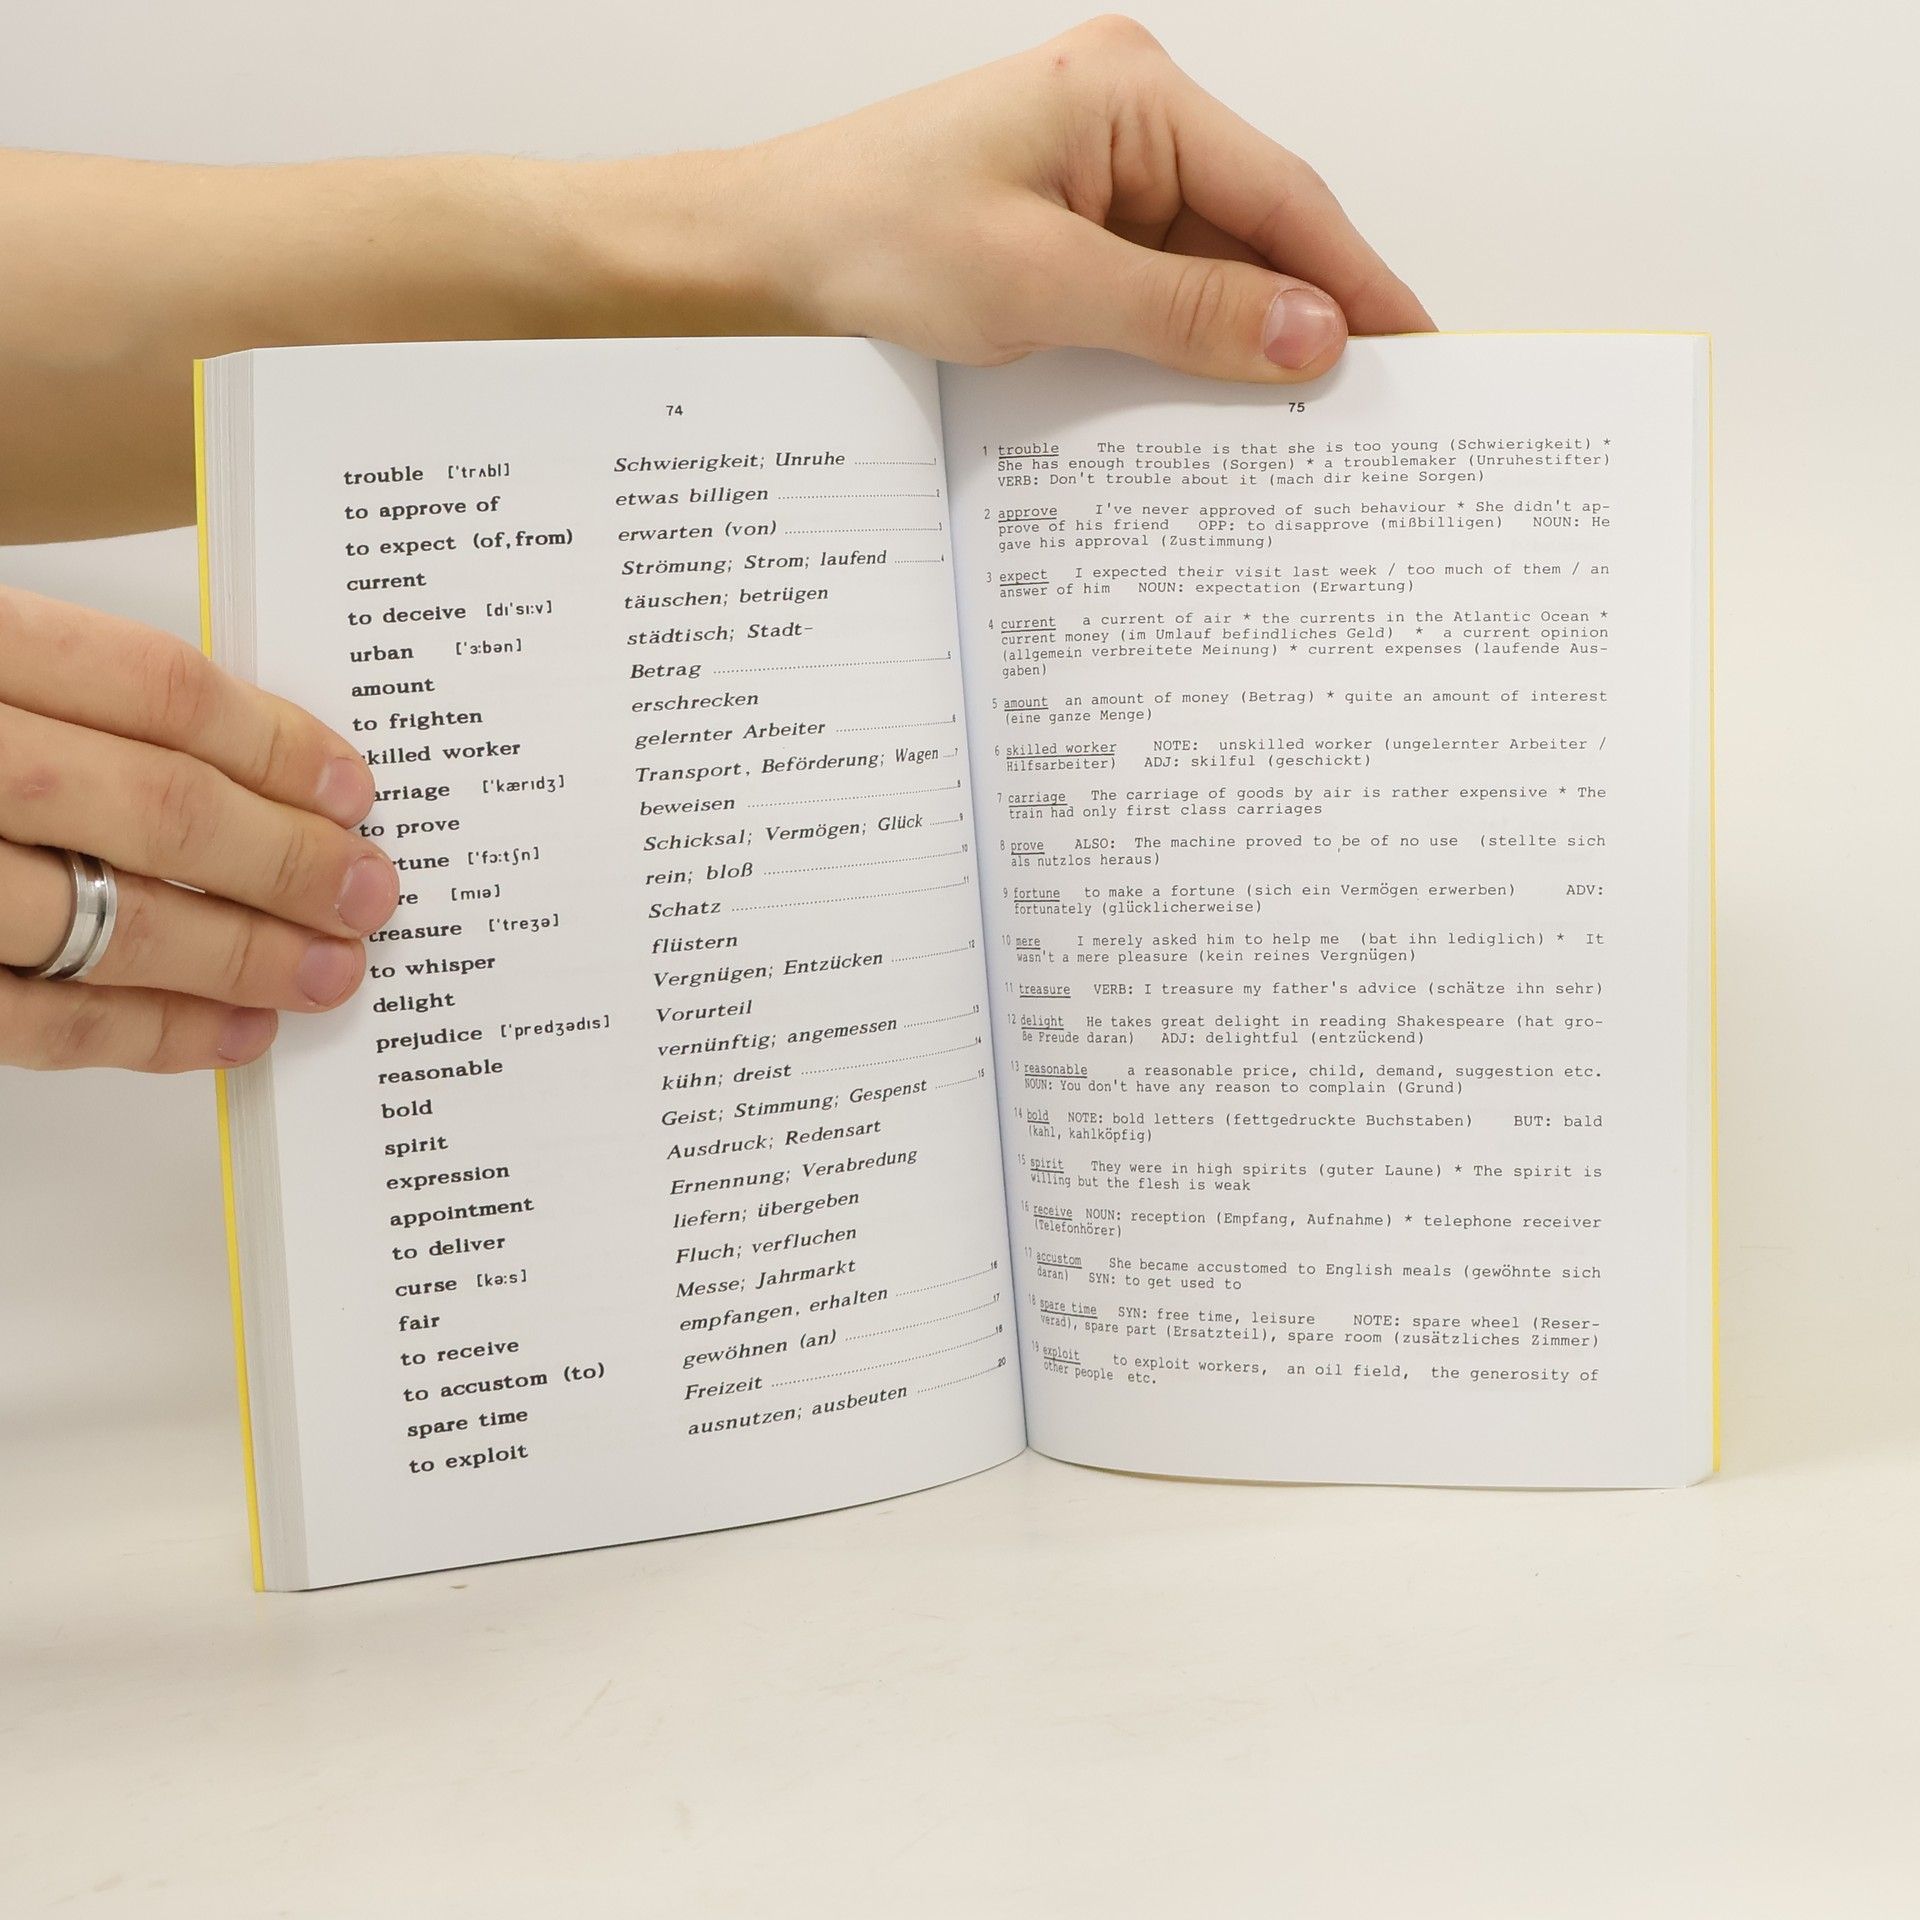 74
trouble ['trʌbl] Schwierigkeit; Unruhe ........ 1
to approve of etwas billigen ........ 2
to expect (of,from) erwarten (von) ........ 3
current Strömung; Strom; laufend ........ 4
to deceive [dɪ'sɪ:v] täuschen; betrügen
urban ['ɜ:bən] städtisch; Stadt-
amount Betrag ........ 5
to frighten erschrecken
killed worker gelernter Arbeiter ........ 6
arriage ['kærɪdʒ] Transport, Beförderung; Wagen ... 7
to prove beweisen ........ 8
tune ['fɔ:tʃn] Schicksal; Vermögen; Glück ........ 9
re [mɪə] rein; bloß ........ 10
treasure ['treʒə] Schatz ........ 11
to whisper flüstern
delight Vergnügen; Entzücken ........ 12
prejudice ['predʒədɪs] Vorurteil
reasonable vernünftig; angemessen ........ 13
bold kühn; dreist ........ 14
spirit Geist; Stimmung; Gespenst ........ 15
expression Ausdruck; Redensart
appointment Ernennung; Verabredung
to deliver liefern; übergeben
curse [kə:s] Fluch; verfluchen
fair Messe; Jahrmarkt
to receive empfangen, erhalten ........ 16
to accustom (to) gewöhnen (an) ........ 17
spare time Freizeit ........ 18
to exploit ausnutzen; ausbeuten ........ 20
75
1 trouble The trouble is that she is too young (Schwierigkeit) *
She has enough troubles (Sorgen) * a troublemaker (Unruhestifter)
VERB: Don't trouble about it (mach dir keine Sorgen)
2 approve I've never approved of such behaviour * She didn't ap-
prove of his friend OPP: to disapprove (mißbilligen) NOUN: He
gave his approval (Zustimmung)
3 expect I expected their visit last week / too much of them / an
answer of him NOUN: expectation (Erwartung)
4 current a current of air * the currents in the Atlantic Ocean *
current money (im Umlauf befindliches Geld) * a current opinion
(allgemein verbreitete Meinung) * current expenses (laufende Aus-
gaben)
5 amount an amount of money (Betrag) * quite an amount of interest
(eine ganze Menge)
6 skilled worker NOTE: unskilled worker (ungelernter Arbeiter /
Hilfsarbeiter) ADJ: skilful (geschickt)
7 carriage The carriage of goods by air is rather expensive * The
train had only first class carriages
8 prove ALSO: The machine proved to be of no use (stellte sich
als nutzlos heraus)
9 fortune to make a fortune (sich ein Vermögen erwerben) ADV:
fortunately (glücklicherweise)
10 mere I merely asked him to help me (bat ihn lediglich) * It
wasn't a mere pleasure (kein reines Vergnügen)
11 treasure VERB: I treasure my father's advice (schätze ihn sehr)
12 delight He takes great delight in reading Shakespeare (hat gro-
ße Freude daran) ADJ: delightful (entzückend)
13 reasonable a reasonable price, child, demand, suggestion etc.
NOUN: You don't have any reason to complain (Grund)
14 bold NOTE: bold letters (fettgedruckte Buchstaben) BUT: bald
(kahl, kahlköpfig)
15 spirit They were in high spirits (guter Laune) * The spirit is
willing but the flesh is weak
16 receive NOUN: reception (Empfang, Aufnahme) * telephone receiver
(Telefonhörer)
17 accustom She became accustomed to English meals (gewöhnte sich
daran) SYN: to get used to
18 spare time SYN: free time, leisure NOTE: spare wheel (Reser-
verad), spare part (Ersatzteil), spare room (zusätzliches Zimmer)
19 exploit to exploit workers, an oil field, the generosity of
other people etc.